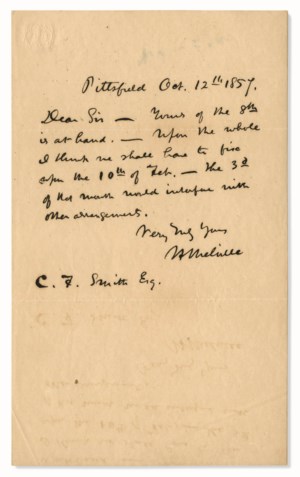 Pittsfield Oct. 12th 1857.
Dear Sir — Yours of the 8th
is at hand. — Upon the whole
I think we shall have to fix
upon the 10th of Feb. — the 3d
of that month would interfere with
other arrangements.
Very Truly Yours
H Melville
C. F. Smith Esq.